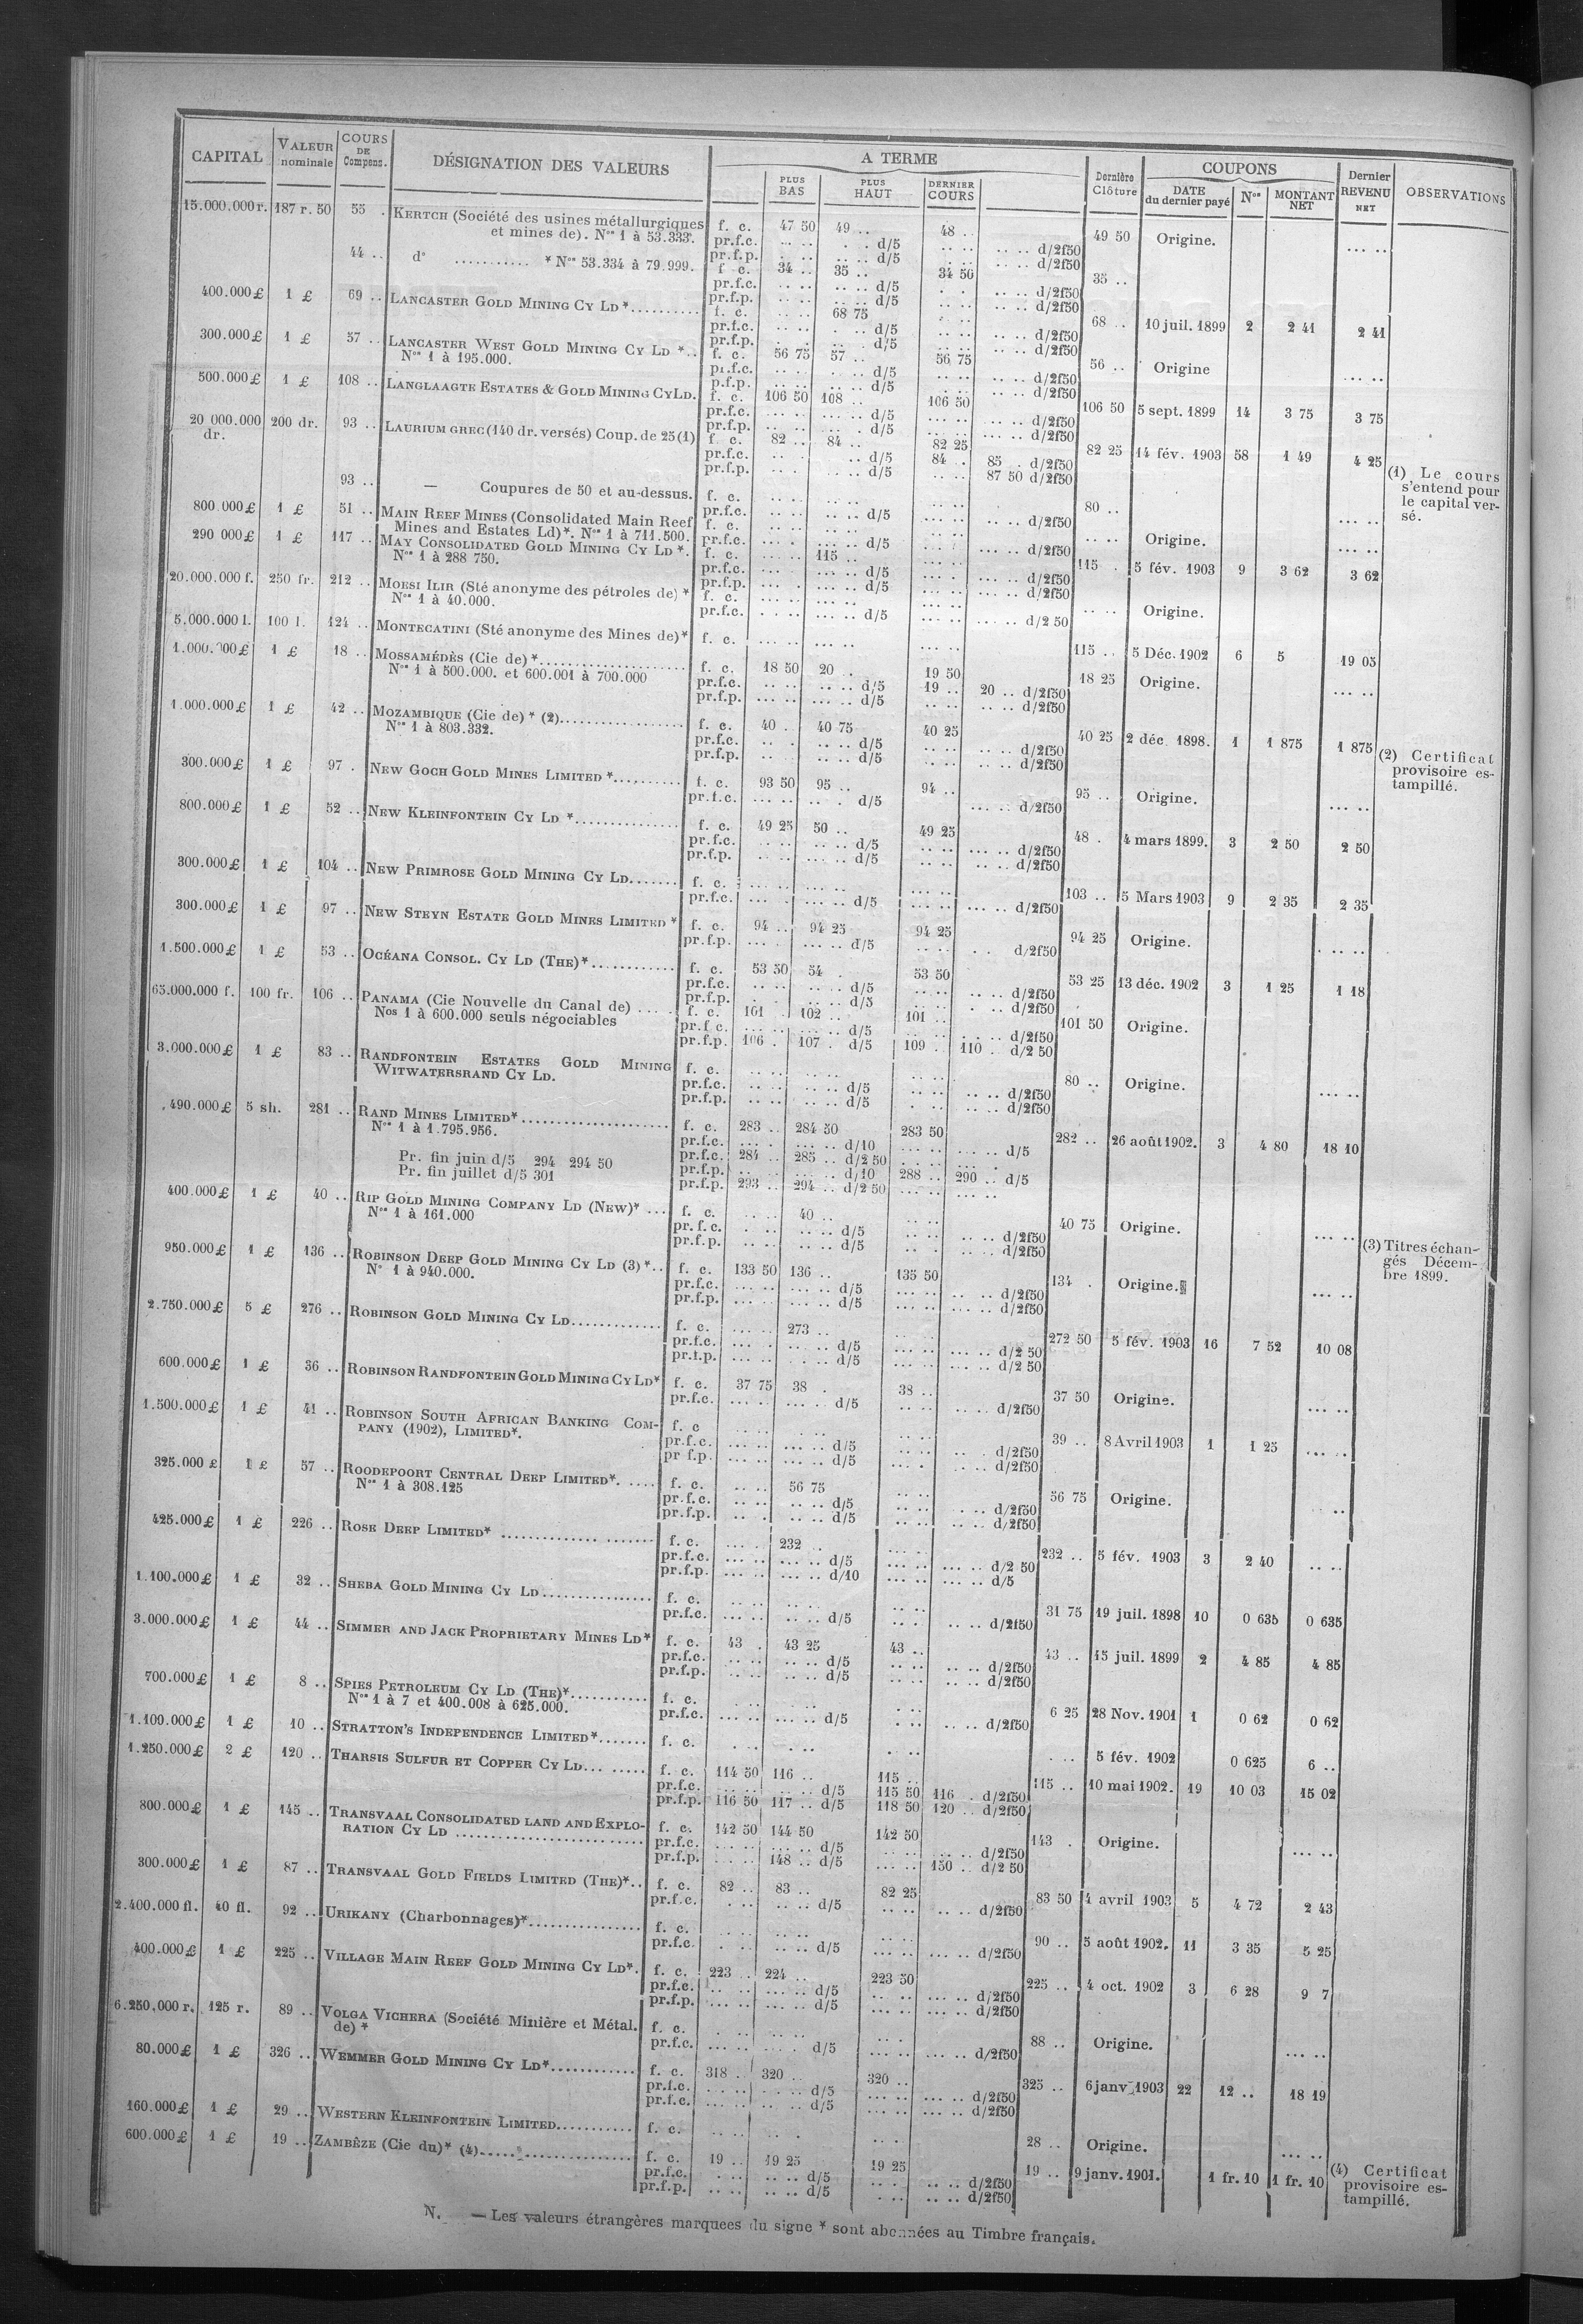 CAPITAL VALEUR nominale COURS DE Compens. DÉSIGNATION DES VALEURS A TERME PLUS BAS PLUS HAUT DERNIER COURS Dernière Clôture COUPONS DATE du dernier payé Nos MONTANT NET Dernier REVENU NET OBSERVATIONS
15.000.000 r. 187 r. 50 55 . KERTCH (Société des usines métallurgiques f. c. 47 50 49 .. 48 .. 49 50 Origine. ... ..
et mines de). Nos 1 à 53.333. pr.f.c. ... .. . . d/5 .. .. .. .. d/2f50
pr.f.p. . .. .. .. d/5 . .. .. .. d/2f50
44 .. d° ........... * Nos 53.334 à 79.999. f. c. 34 .. 35 .. 34 50 35 ..
pr.f.c. .. .. .. .. d/5 . . .. .. d/2f50
pr.f.p. .. .. .. .. d/5 .. .. .. .. d/2f50
400.000 £ 1 £ 69 .. LANCASTER GOLD MINING CY LD *.......... f. c. .. .. 68 75 68 .. 10 juil. 1899 2 2 41 2 41
pr.f.c. .. .. . .. d/5 .. .. .. .. d/2f50
pr.f.p. . . .. . d/5 .. .. .. .. d/2f50
300.000 £ 1 £ 57 .. LANCASTER WEST GOLD MINING CY LD *.. f. c. 56 75 57 .. 56 75 56 .. Origine ... ..
Nos 1 à 195.000. pr.f.c. .. .. . .. d/5 .. .. .. .. d/2f50
p.f.p. .. .. .. .. d/5 .. .. .. .. d/2f50
500.000 £ 1 £ 108 .. LANGLAAGTE ESTATES & GOLD MINING CY LD. f. c. 106 50 108 .. 106 50 106 50 5 sept. 1899 14 3 75 3 75
pr.f.c. ... .. ... .. d/5 ... .. ... .. d/2f50
pr.f.p. .. .. .. . d/5 .. .. ... .. d/2f50
20 000.000 dr. 200 dr. 93 .. LAURIUM GREC (140 dr. versés) Coup. de 25 (1) f. c. 82 .. 84 .. 82 25 82 25 14 fév. 1903 58 1 49 4 25
pr.f.c. .. . .. d/5 84 .. 85 . d/2f50
pr.f.p. .. . .. .. d/5 .. .. 87 50 d/2f50
(1) Le cours
s'entend pour
le capital ver-
sé.
93 .. — Coupures de 50 et au-dessus. f. c. .. .. .. .. 80 .. ... ..
pr.f.c. .. .. .. .. d/5 ... .. .. .. d/2f50
800.000 £ 1 £ 51 .. MAIN REEF MINES (Consolidated Main Reef f. c. .. .. .. .. .. .. Origine. ... ..
Mines and Estates Ld)*. Nos 1 à 711.500. pr.f.c. ... . ... .. d/5 ... .. d/2f50
290 000 £ 1 £ 117 .. MAY CONSOLIDATED GOLD MINING CY LD *. f. c. ... .. 115 .. 115 . 5 fév. 1903 9 3 62 3 62
Nos 1 à 288 750. pr.f.c. ... .. ... .. d/5 ... .. ... .. d/2f50
pr.f.p. ... . ... .. d/5 ... .. ... .. d/2f50
20.000.000 f. 250 fr. 212 .. MOESI ILIR (Sté anonyme des pétroles de) * f. c. ... .. ... .. .. .. Origine.
Nos 1 à 40.000. pr.f.c. . .. .. ... .. d/5 ... .. ... .. d/2 50
5.000.000 l. 100 l. 124 .. MONTECATINI (Sté anonyme des Mines de)* f. c. ... .. ... .. ... .. 115 .. 5 Déc. 1902 6 5 19 05
1.000.000 £ 1 £ 18 .. MOSSAMÉDÈS (Cie de) *.................... f. c. 18 50 20 .. 19 50 18 25 Origine. ... ..
Nos 1 à 500.000. et 600.001 à 700.000 pr.f.c. .. .. .. .. d/5 19 .. 20 .. d/2f50
pr.f.p. ... .. ... .. d/5 .. .. .. .. d/2f50
1.000.000 £ 1 £ 42 .. MOZAMBIQUE (Cie de) * (2).................. f. c. 40 .. 40 75 40 25 40 25 2 déc. 1898. 1 1 875 1 875
Nos 1 à 803.332. pr.f.c. .. . .. .. d/5 .. .. .. .. d/2f50
pr.f.p. .. .. .. d/5 .. .. .. .. d/2f50
(2) Certificat
provisoire es-
tampillé.
300.000 £ 1 £ 97 . NEW GOCH GOLD MINES LIMITED *.......... f. c. 93 50 95 .. 94 .. 95 .. Origine. ... ..
pr.f.c. ... .. .. . d/5 ... .. d/2f50
800.000 £ 1 £ 52 .. NEW KLEINFONTEIN CY LD *............... f. c. 49 25 50 .. 49 25 48 . 4 mars 1899. 3 2 50 2 50
pr.f.c. .. .. .. .. d/5 .. .. ... .. d/2f50
pr.f.p. .. .. ... .. d/5 .. .. .. .. d/2f50
300.000 £ 1 £ 104 .. NEW PRIMROSE GOLD MINING CY LD....... f. c. ... .. ... .. ... .. 103 .. 5 Mars 1903 9 2 35 2 35
pr.f.c. ... . ... .. d/5 ... .. ... .. d/2f50
300.000 £ 1 £ 97 .. NEW STEYN ESTATE GOLD MINES LIMITED * f. c. 94 .. 94 25 94 25 94 25 Origine. . .. ..
pr.f.p. ... . ... .. d/5 .. .. . . d/2f50
1.500.000 £ 1 £ 53 .. OCÉANA CONSOL. CY LD (THE)*............ f. c. 53 50 54 . 53 50 53 25 13 déc. 1902 3 1 25 1 18
pr.f.c. .. .. .. .. d/5 .. .. .. .. d/2f50
pr.f.p. . . .. .. d/5 .. .. . .. d/2f50
65.000.000 f. 100 fr. 106 .. PANAMA (Cie Nouvelle du Canal de) ..... f. c. 101 . 102 .. 101 .. 101 50 Origine.
Nos 1 à 600.000 seuls négociables pr.f.c. ... .. ... .. d/5 ... .. . .. d/2f50
pr.f.p. 106 . 107 . d/5 109 .. 110 . d/2 50
3.000.000 £ 1 £ 83 .. RANDFONTEIN ESTATES GOLD MINING f. c. .. .. .. .. .. .. 80 .. Origine. ... ..
WITWATERSRAND CY LD. pr.f.c. .. .. .. .. d/5 .. .. .. .. d/2f50
pr.f.p. .. .. .. .. d/5 . .. .. .. d/2f50
.490.000 £ 5 sh. 281 .. RAND MINES LIMITED*..................... f. c. 283 .. 284 50 283 50 282 .. 26 août 1902. 3 4 80 18 10
Nos 1 à 1.795.956. pr.f.c. ... . ... .. d/10 ... .. ... .. d/5
Pr. fin juin d/5 294 294 50 pr.f.c. 284 .. 285 .. d/2 50 . .. .. ... .
Pr. fin juillet d/5 301 pr.f.p. .. .. ... .. d/10 288 .. 290 .. d/5
pr.f.p. 293 .. 294 .. d/2 50 ... .. ... ..
400.000 £ 1 £ 40 .. RIP GOLD MINING COMPANY LD (NEW)* ... f. c. .. .. 40 .. .. .. 40 75 Origine. ... ..
Nos 1 à 161.000 pr.f.c. . .. .. .. d/5 .. .. .. .. d/2f50
pr.f.p. .. .. .. .. d/5 .. . .. .. d/2f50
950.000 £ 1 £ 136 .. ROBINSON DEEP GOLD MINING CY LD (3) *.. f. c. 133 50 136 .. 135 50 134 . Origine. ... ..
N° 1 à 940.000. pr.f.c. ... .. ... .. d/5 ... .. .. .. d/2f50
pr.f.p. ... .. ... .. d/5 ... .. ... .. d/2f50
(3) Titres échan-
gés Décem-
bre 1899.
2.750.000 £ 5 £ 276 .. ROBINSON GOLD MINING CY LD............. f. c. ... .. 273 .. .. .. 272 50 5 fév. 1903 16 7 52 10 08
pr.f.c. ... . .. .. d/5 ... .. ... .. d/2 50
pr.f.p. ... .. . .. d/5 ... .. ... .. d/2 50
600.000 £ 1 £ 36 .. ROBINSON RANDFONTEIN GOLD MINING CY LD* f. c. 37 75 38 . 38 .. 37 50 Origine. ... ..
pr.f.c. ... .. ... .. d/5 .. .. .. .. d/2f50
1.500.000 £ 1 £ 41 .. ROBINSON SOUTH AFRICAN BANKING COM- f. c .. .. .. .. .. .. 39 .. 8 Avril 1903 1 1 25 ... ..
PANY (1902), LIMITED*. pr.f.c. ... .. ... .. d/5 .. .. .. . d/2f50
pr f.p. ... .. ... .. d/5 ... . .. .. d/2f50
325.000 £ 1 £ 57 .. ROODEPOORT CENTRAL DEEP LIMITED*. .... f. c. .. .. 56 75 .. .. 56 75 Origine. ..
Nos 1 à 308.125 pr.f.c. .. .. .. .. d/5 .. .. . .. d/2f50
pr.f.p. .. . .. .. d/5 .. .. .. .. d/2f50
425.000 £ 1 £ 226 .. ROSE DEEP LIMITED* ..................... f. c. ... . 232 .. ... . 232 .. 5 fév. 1903 3 2 40 .. ..
pr.f.c. ... .. ... .. d/5 ... .. ... .. d/2 50
pr.f.p. ... .. ... .. d/10 ... .. ... .. d/5
1.100.000 £ 1 £ 32 .. SHEBA GOLD MINING CY LD................ f. c. .. .. .. .. .. .. 31 75 19 juil. 1898 10 0 635 0 635
pr.f.c. ... .. .. .. d/5 .. . .. .. d/2f50
3.000.000 £ 1 £ 44 .. SIMMER AND JACK PROPRIETARY MINES LD* f. c. 43 . 43 25 43 .. 43 .. 15 juil. 1899 2 4 85 4 85
pr.f.c. .. .. .. .. d/5 .. .. .. .. d/2f50
pr.f.p. .. .. .. .. d/5 .. .. .. .. d/2f50
700.000 £ 1 £ 8 .. SPIES PETROLEUM CY LD (THE)*........... f. c. . .. .. .. . .. 6 25 28 Nov. 1901 1 0 62 0 62
Nos 1 à 7 et 400.008 à 625.000. pr.f.c. ... .. ... .. d/5 . .. .. .. d/2f50
1.100.000 £ 1 £ 10 .. STRATTON'S INDEPENDENCE LIMITED*....... f. c. . .. . .. . .. . .. 5 fév. 1902 0 625 6 ..
1.250.000 £ 2 £ 120 .. THARSIS SULFUR ET COPPER CY LD... ..... f. c. 114 50 116 .. 115 .. 115 .. 10 mai 1902. 19 10 03 15 02
pr.f.c. .. .. .. .. d/5 115 50 116 . d/2f50
pr.f.p. 116 50 117 .. d/5 118 50 120 .. d/2f50
800.000 £ 1 £ 145 .. TRANSVAAL CONSOLIDATED LAND AND EXPLO- f. c. 142 50 144 50 142 50 143 . Origine. ... ..
RATION CY LD ........................... pr.f.c. ... .. ... .. d/5 .. .. d/2f50
pr.f.p. ... .. 148 .. d/5 ... .. 150 .. d/2 50
300.000 £ 1 £ 87 .. TRANSVAAL GOLD FIELDS LIMITED (THE)*.. f. c. 82 .. 83 .. 82 25 83 50 4 avril 1903 5 4 72 2 43
pr.f.c. . .. .. .. d/5 .. .. .. .. d/2f50
2.400.000 fl. 40 fl. 92 .. URIKANY (Charbonnages)*................ f. c. .. .. .. .. .. .. 90 .. 5 août 1902. 11 3 35 5 25
pr.f.c. . . .. .. d/5 ... .. ... .. d/2f50
400.000 £ 1 £ 225 .. VILLAGE MAIN REEF GOLD MINING CY LD*. f. c. 223 .. 224 .. 223 50 225 .. 4 oct. 1902 3 6 28 9 7
pr.f.c. .. .. ... .. d/5 .. .. ... .. d/2f50
pr.f.p. ... .. ... .. d/5 ... .. ... .. d/2f50
6.250,000 r. 125 r. 89 .. VOLGA VICHERA (Société Minière et Métal. f. c. . .. .. .. .. . 88 .. Origine. ... ..
de) * pr.f.c. ... .. ... . d/5 ... .. ... .. d/2f50
80.000 £ 1 £ 326 .. WEMMER GOLD MINING CY LD*............ f. c. 318 .. 320 .. 320 .. 325 .. 6 janv. 1903 22 12 .. 18 19
pr.f.c. . .. .. . .. d/5 ... .. ... .. d/2f50
pr.f.c. ... .. .. .. d/5 ... .. ... .. d/2f50
160.000 £ 1 £ 29 .. WESTERN KLEINFONTEIN LIMITED........... f. c. .. .. .. . .. . 28 .. Origine. ... ..
600.000 £ 1 £ 19 .. ZAMBÈZE (Cie du)* (4)..................... f. c. 19 .. 19 25 19 25 19 .. 9 janv. 1901. 1 fr. 10 1 fr. 10
pr.f.c. . .. .. .. d/5 .. . .. .. d/2f50
pr.f.p. .. .. .. .. d/5 . .. .. .. d/2f50
(4) Certificat
provisoire es-
tampillé.
N. — Les valeurs étrangères marquees du signe * sont abonnées au Timbre français.